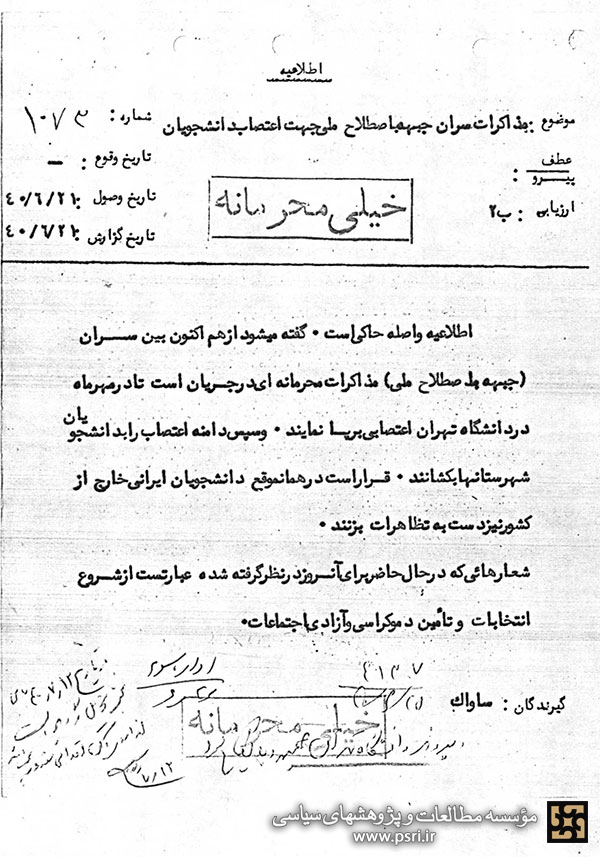 اطلاعیه
موضوع : مذاکرات سران جبهه باصطلاح ملی جهت اعتصاب دانشجویان
شماره : ۱۰۷۳
عطف
پیرو :
تاریخ وقوع : –
ارزیابی : ب۲
تاریخ وصول : ۴۰/۶/۲۱
تاریخ گزارش : ۴۰/۶/۲۱
خیلی محرمانه
اطلاعیه واصله حاکی است ۰ گفته میشود از هم اکنون بین ســـران
(جبهه باصطلاح ملی) مذاکرات محرمانه ای در جریان است تا در مهرماه
در دانشگاه تهران اعتصابی برپا نمایند ۰ و سپس دامنه اعتصاب را بدانشجویان
شهرستانها بکشانند ۰ قرار است در همانموقع دانشجویان ایرانی خارج از
کشور نیز دست به تظاهرات بزنند ۰
شعارهائی که در حال حاضر برای آنروز در نظر گرفته شده عبارتست از شروع
انتخابات و تأمین دموکراسی و آزادی اجتماعات۰
گیرندگان : ساواك
خیلی محرمانه
مؤسسه مطالعات و پژوهشهای سیاسی
www.psri.ir